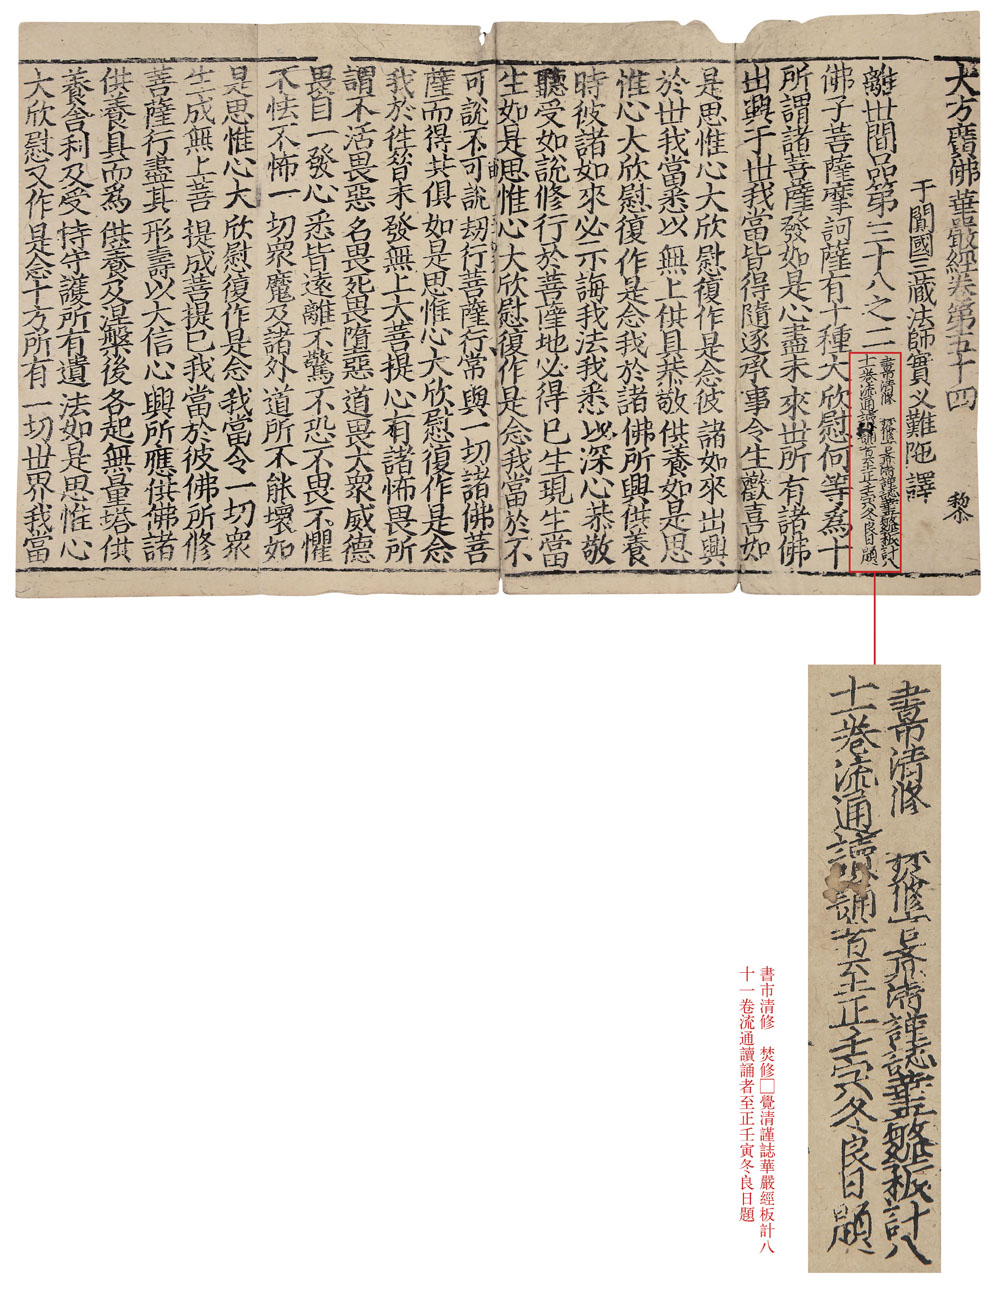 大方廣佛華嚴經卷第五十四 黎
于闐國三藏法師實叉難陁譯
離世間品第三十八之二
書市清修 焚修 覺清謹誌華嚴經板計八
十一卷流通讀誦者至正壬寅冬良日題
佛子菩薩摩訶薩有十種大欣慰何等為十
所謂諸菩薩發如是心盡未來世所有諸佛
出興于世我當皆得隨逐承事令生歡喜如
是思惟心大欣慰復作是念彼諸如來出興
於世我當悉以無上供具恭敬供養如是思
惟心大欣慰復作是念我於諸佛所興供養
時彼諸如來必示誨我法我悉以深心恭敬
聽受如說修行於菩薩地必得已生現生當
生如是思惟心大欣慰復作是念我當於不
可說不可說劫行菩薩行常與一切諸佛菩
薩而得共俱如是思惟心大欣慰復作是念
我於往昔未發無上大菩提心有諸怖畏所
謂不活畏惡名畏死畏墮惡道畏大衆威德
畏自一發心悉皆遠離不驚不恐不畏不懼
不怯不怖一切衆魔及諸外道所不能壞如
是思惟心大欣慰復作是念我當令一切衆
生成無上菩提成菩提已我當於彼佛所修
菩薩行盡其形壽以大信心興所應供佛諸
供養具而爲供養及涅槃後各起無量塔供
養舍利及受持守護所有遺法如是思惟心
大欣慰又作是念十方所有一切世界我當
書市清修 焚修 覺清謹誌華嚴經板計八
十一卷流通讀誦者至正壬寅冬良日題
書市清修 焚修□覺清謹誌華嚴經板計八
十一卷流通讀誦者至正壬寅冬良日題